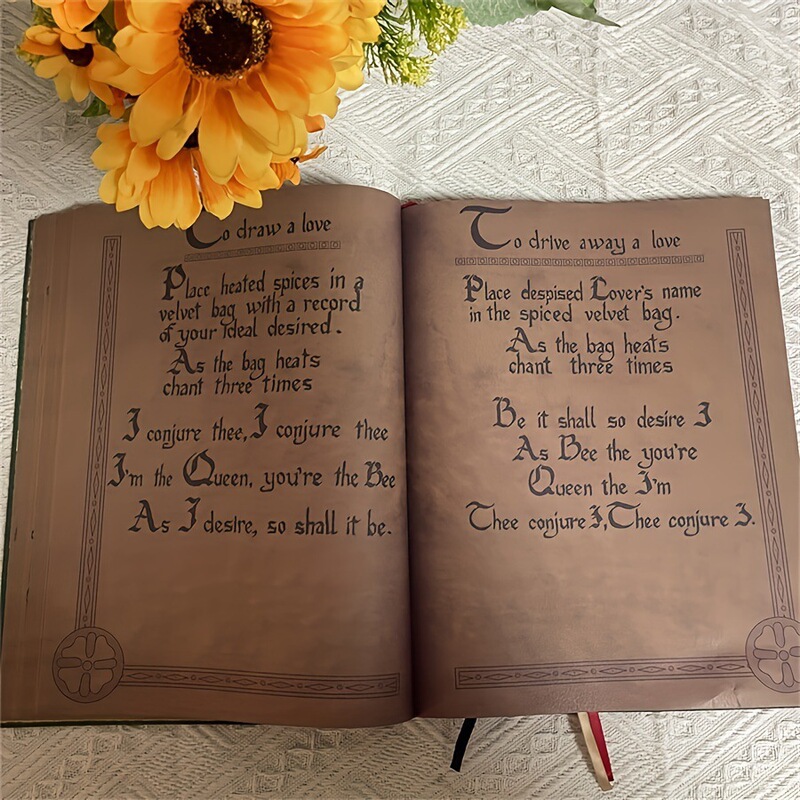 To draw a love
Place heated spices in a
velvet bag with a record
of your ideal desired.
As the bag heats
chant three times
I conjure thee, I conjure thee
I'm the Queen, you're the Bee
As I desire, so shall it be.
To drive away a love
Place despised Lover's name
in the spiced velvet bag.
As the bag heats
chant three times
Be it shall so desire I
As Bee the you're
Queen the I'm
Thee conjure I, Thee conjure I.